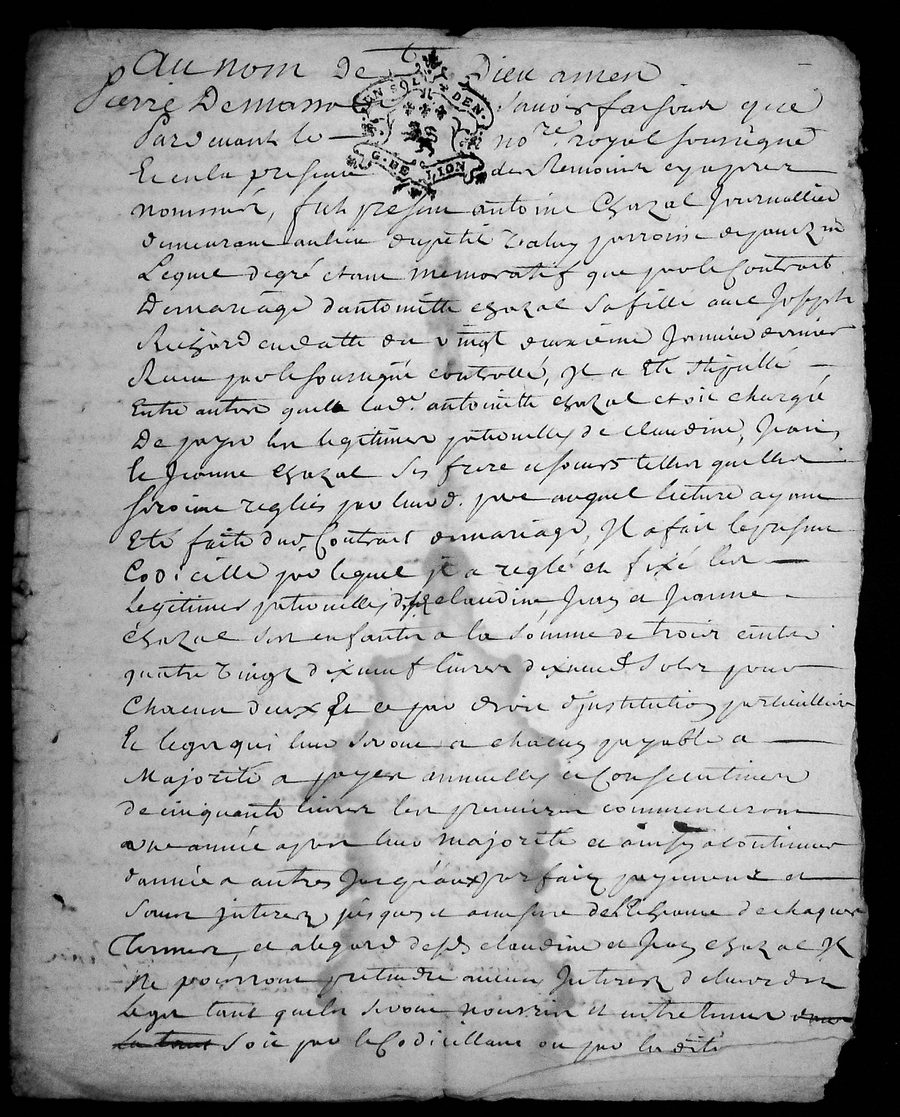 Au nom de Dieu amen
UN SOL DEN.
G. DE LION
Pierre Demasso savoir faisons que
Pardevant le nore. royal soussigné
Et en la presence des temoins cy apres
nommés, fut present antoine Chazal Journallier
demeurant au lieu du petit parroisse de
Lequel de gré etant memoratif que par le Contrat
De mariage d'antoinette chazal sa fille avec Joseph
Richard en datte du vingt deuxieme Janvier dernier
Recu par le soussigné controllé, Il a eté stipullé
Entre autres que lad. antoinette chazal etoit chargée
De payer les legitimes paternelles de claudine, Jean,
le Jeanne chazal ses frere et sœurs telles quelles
seroient reglées par leurd. pere auquel lecture ayant
Eté faite dud. Contrat de mariage, Il a fait le present
Codicille par lequel il a reglé et fixé les
Legitimes paternelles desd. claudine, Jean et Jeanne
chazal ses enfants a la somme de trois cents
quatre vingt dixneuf livres dixneuf sols pour
Chacun deux Et ce par droit d'institution particulliere
Et legat qui leur seront a chacun payable a
Majorité a payes annuelles et Consecutives
de cinquante livres les premieres commenceront
une année apres leur majorité et ainsy a continuer
d'année a autres Jusqu'aux parfait payement et
sans interets jusques et a mesure de l'echeance de chaques
Termes, et a legard desd. claudine et Jean chazal Il
ne pourront pretendre aucun Interets de leursdits
Legat tant quils seront nourris et entretenus
la tout soit par le Codicillant ou par lesdits